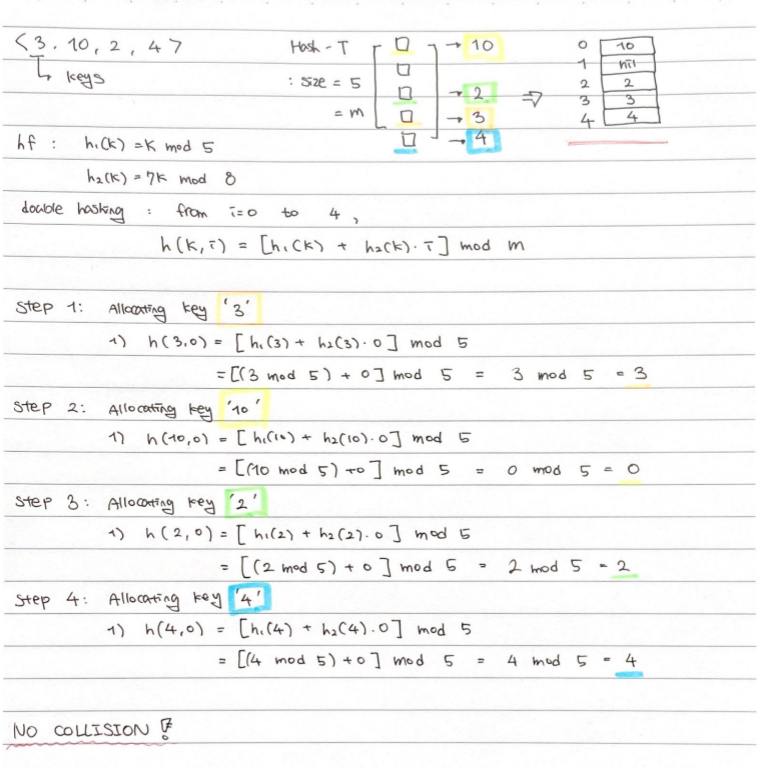 < 3, 10, 2, 4 >
↳ keys
Hash - T
: size = 5
= m
→ 10
→ 2
→ 3
→ 4
⇒
0 10
1 nil
2 2
3 3
4 4
hf : h₁(k) = k mod 5
h₂(k) = 7k mod 8
double hashing : from i=0 to 4,
h(k,i) = [h₁(k) + h₂(k)·i] mod m
Step 1: Allocating key '3'
1) h(3,0) = [h₁(3) + h₂(3)·0] mod 5
= [(3 mod 5) + 0] mod 5 = 3 mod 5 = 3
Step 2: Allocating key '10'
1) h(10,0) = [h₁(10) + h₂(10)·0] mod 5
= [(10 mod 5) +0] mod 5 = 0 mod 5 = 0
Step 3: Allocating key '2'
1) h(2,0) = [h₁(2) + h₂(2)·0] mod 5
= [(2 mod 5) + 0] mod 5 = 2 mod 5 = 2
Step 4: Allocating key '4'
1) h(4,0) = [h₁(4) + h₂(4)·0] mod 5
= [(4 mod 5) +0] mod 5 = 4 mod 5 = 4
NO COLLISION !